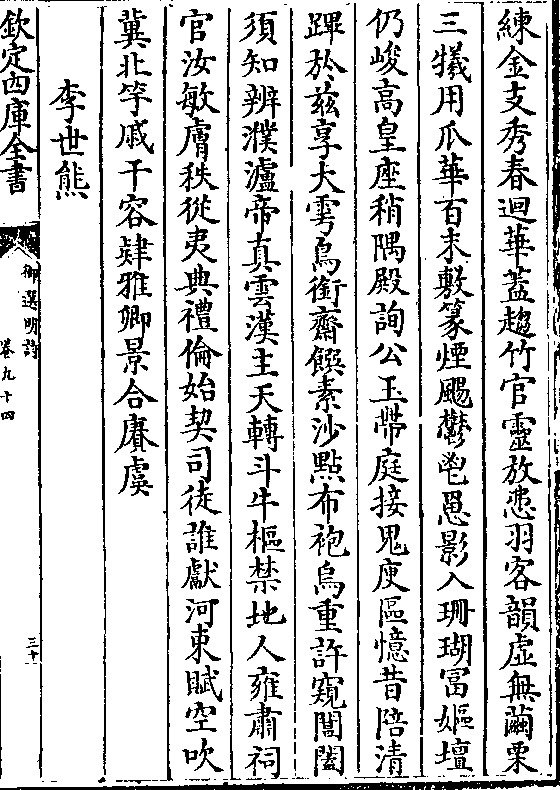 練金支秀春迴華蓋趨竹官靈放悉羽客韻虛無繭栗
三犧用爪華百末敷篆煙颺鬱鬯罳影入珊瑚富媪壇
仍峻高皇座稍隅殿詢公玉帶庭接鬼庾區憶昔陪清
蹕於兹享大雩鳥銜齋饌素沙點布袍烏重許窺閶闔
須知辨濮瀘帝真雲漢主天轉斗牛樞禁地人雍肅祠
官汝敏膚秩從夷典禮倫始契司徒誰獻河東賦空吹
冀北竽戚干容肄雅卿景合賡虞
李世熊
欽定四庫全書
御選明詩
卷九十四
三十一